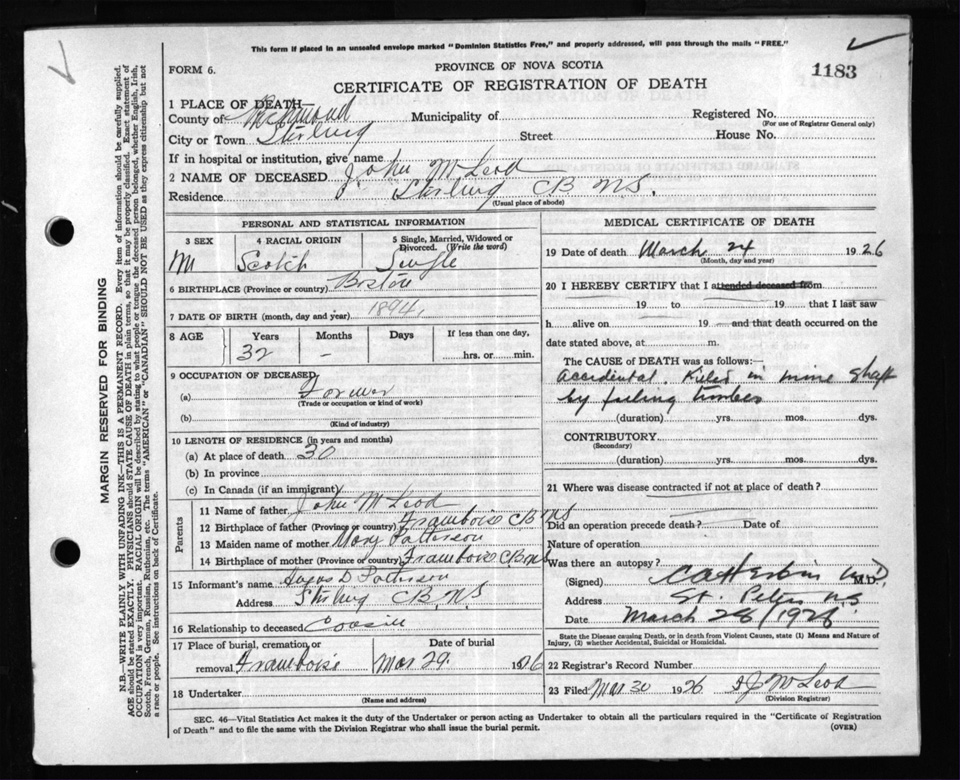 This form if placed in an unsealed envelope marked "Dominion Statistics Free," and properly addressed, will pass through the mails "FREE."
FORM 6.
PROVINCE OF NOVA SCOTIA
1183
CERTIFICATE OF REGISTRATION OF DEATH
1 PLACE OF DEATH—
County of Richmond Municipality of Registered No.
(For use of Registrar General only)
City or Town Stirling Street House No.
If in hospital or institution, give name
2 NAME OF DECEASED John McLeod
Residence Stirling CB NS.
(Usual place of abode)
PERSONAL AND STATISTICAL INFORMATION
3 SEX 4 RACIAL ORIGIN 5 Single, Married, Widowed or Divorced. (Write the word)
M Scotch Single
6 BIRTHPLACE (Province or country) Boston
7 DATE OF BIRTH (month, day and year) 1894
8 AGE Years Months Days If less than one day,
32 – hrs. or min.
9 OCCUPATION OF DECEASED
(a)
(Trade or occupation or kind of work)
(b)
(Kind of industry)
10 LENGTH OF RESIDENCE (in years and months)
(a) At place of death 30
(b) In province
(c) In Canada (if an immigrant)
Parents
11 Name of father John McLeod
12 Birthplace of father (Province or country) Framboise CB NS
13 Maiden name of mother Mary Patterson
14 Birthplace of mother (Province or country) Framboise CB NS
15 Informant's name D Patterson
Address Stirling CB, NS
16 Relationship to deceased Cousin
17 Place of burial, cremation, or removal Framboise Date of burial Mar 29 1926
18 Undertaker
(Name and address)
MEDICAL CERTIFICATE OF DEATH
19 Date of death March 24 1926
(Month, day and year)
20 I HEREBY CERTIFY that I attended deceased from
19 to 19 that I last saw
h alive on 19 and that death occurred on the
date stated above, at m.
The CAUSE OF DEATH was as follows:—
Accidental. Killed in mine shaft
by falling timbers
(duration) yrs. mos. dys.
CONTRIBUTORY
(Secondary)
(duration) yrs. mos. dys.
21 Where was disease contracted if not at place of death?
Did an operation precede death? Date of
Nature of operation
Was there an autopsy?
(Signed) M.D.
Address St. Peters N.S.
Date March 28/1926
State the Disease causing Death, or in death from Violent Causes, state (1) Means and Nature of Injury, (2) whether Accidental, Suicidal or Homicidal.
22 Registrar's Record Number
23 Filed Mar 30 1926 McLeod
(Division Registrar)
SEC. 46—Vital Statistics Act makes it the duty of the Undertaker or person acting as Undertaker to obtain all the particulars required in the "Certificate of Registration
of Death" and to file the same with the Division Registrar who shall issue the burial permit. (OVER)
MARGIN RESERVED FOR BINDING
N.B.—WRITE PLAINLY WITH UNFADING INK—THIS IS A PERMANENT RECORD. Every item of information should be carefully supplied.
AGE should be stated EXACTLY. PHYSICIANS should STATE CAUSE OF DEATH in plain terms, so that it may be properly classified. Exact statement of
OCCUPATION is very important. RACIAL ORIGIN will be described by stating to what people or tongue the deceased person belonged, whether English, Irish,
Scotch, French, German, Russian, Ruthenian, etc. The terms "AMERICAN" or "CANADIAN" SHOULD NOT BE USED as they express citizenship but not
a race or people. See instructions on back of Certificate.